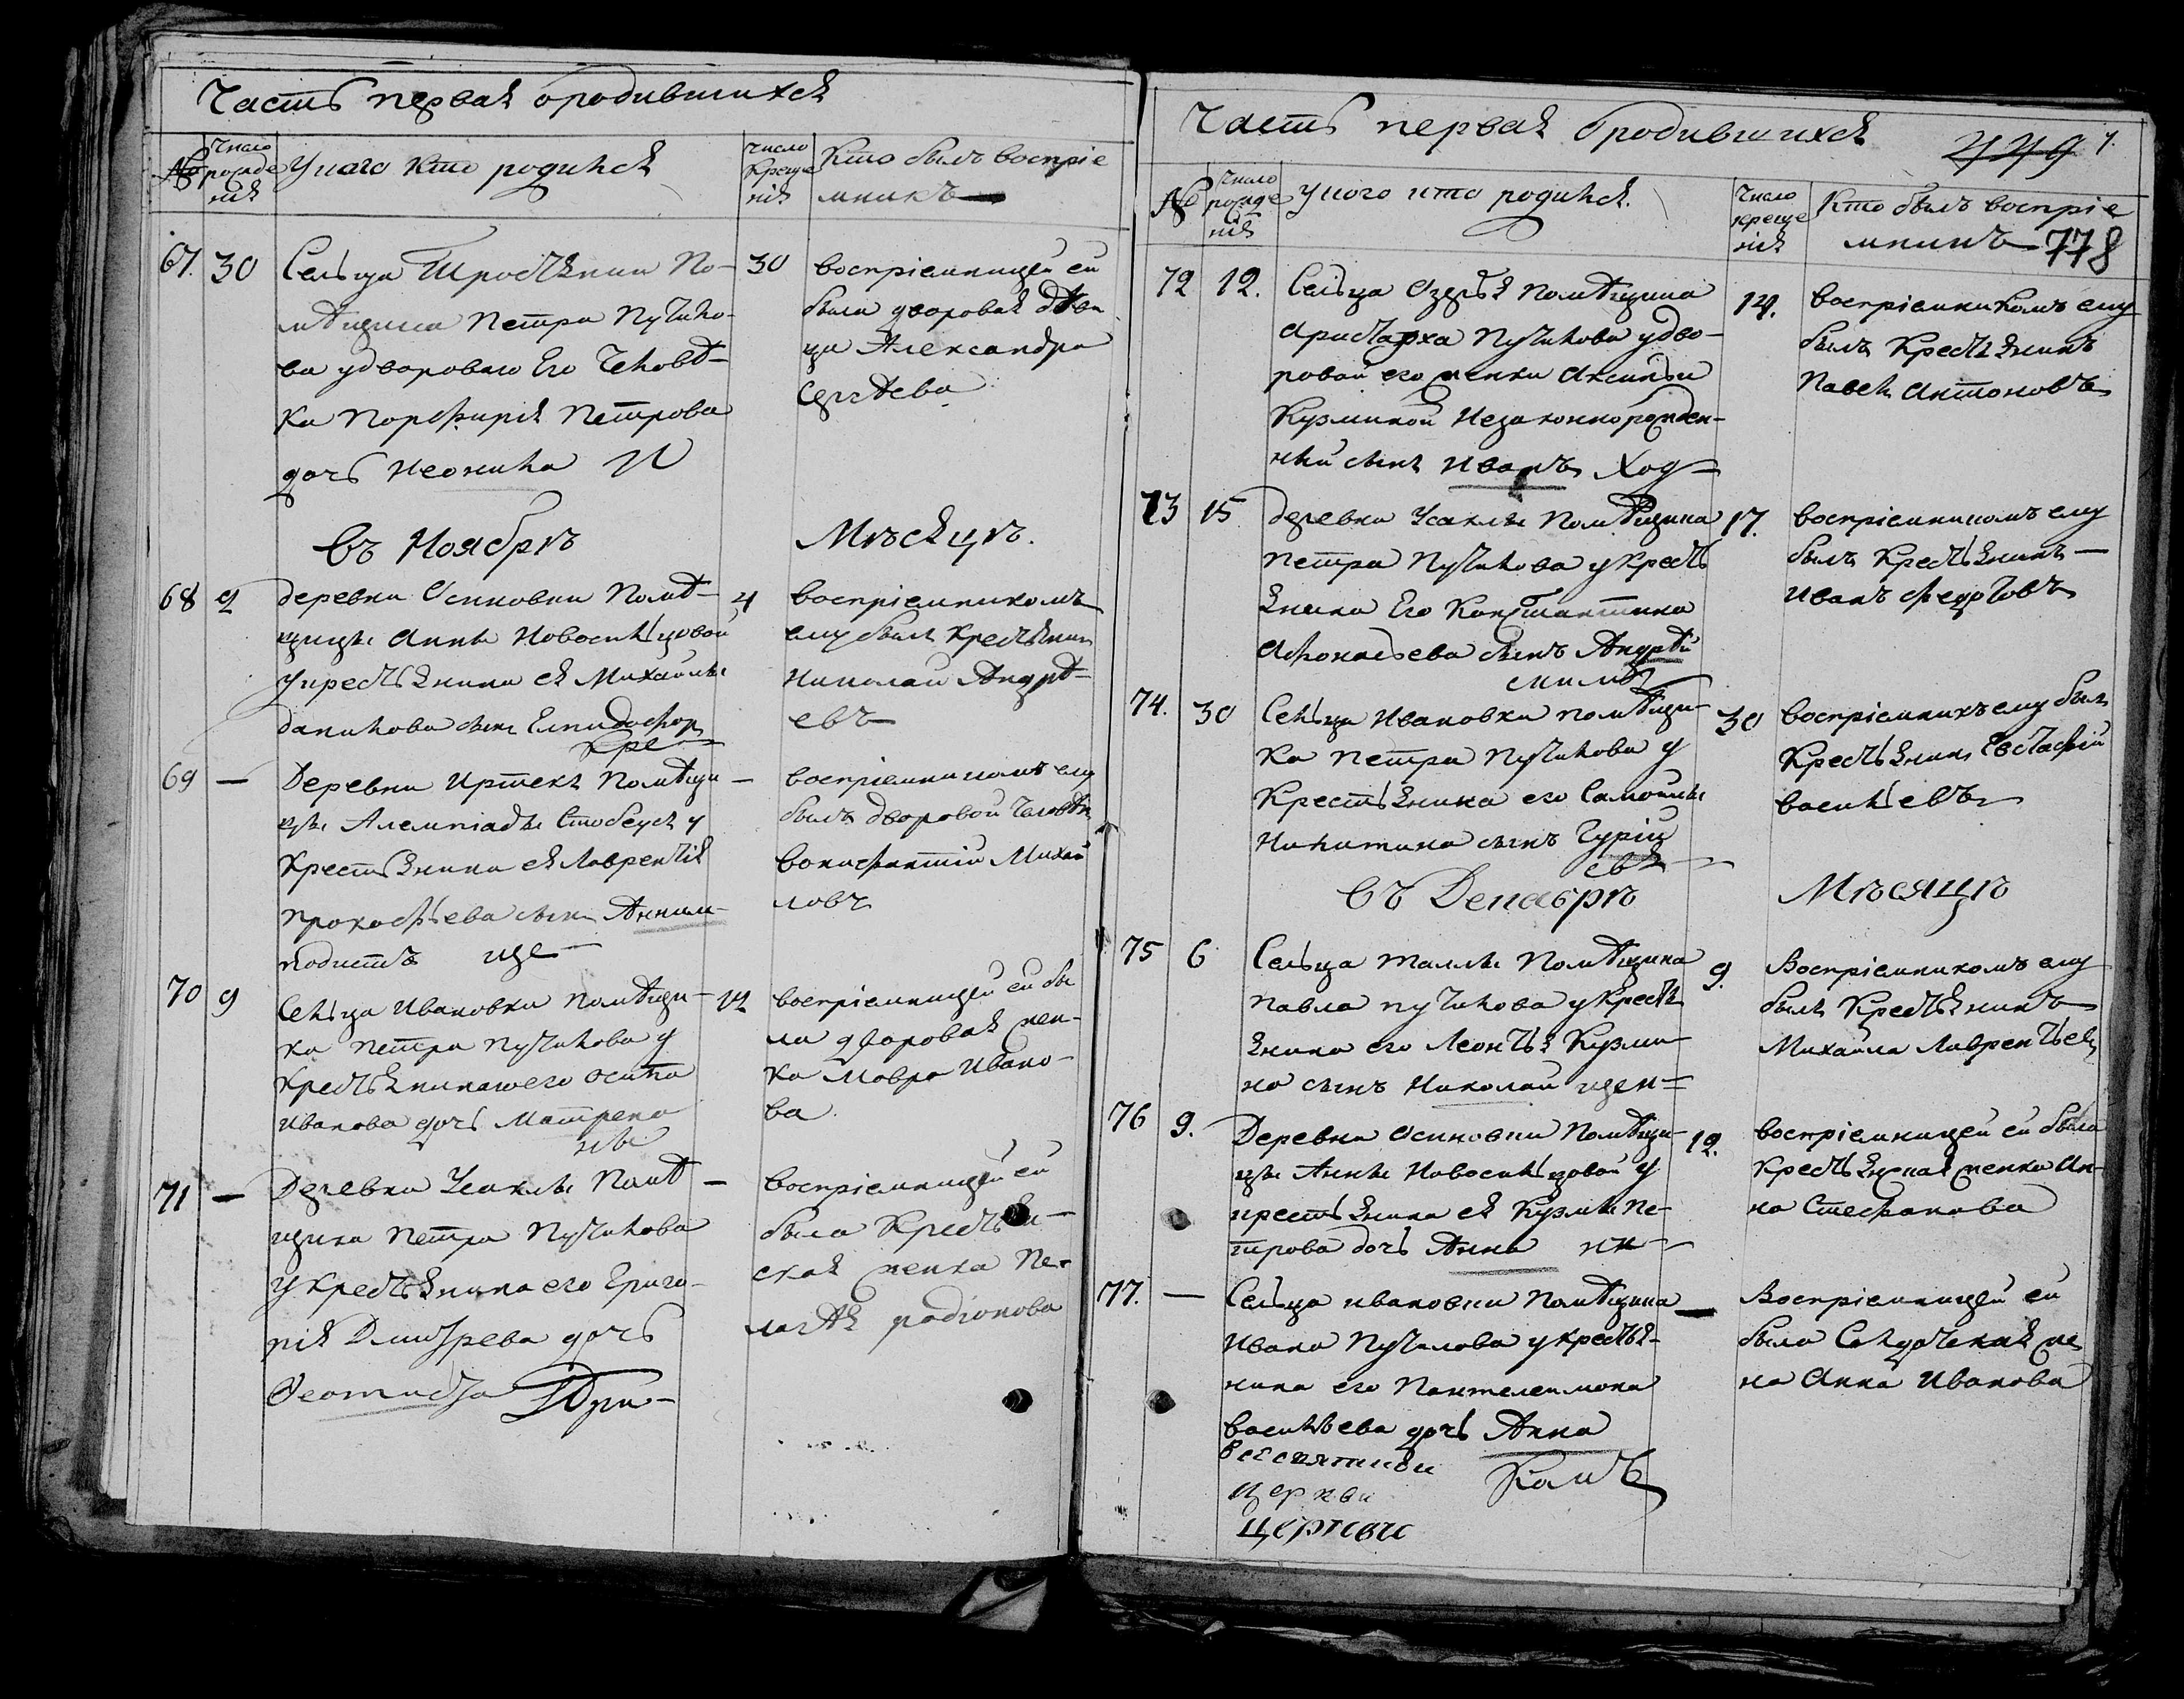 Часть первая о родившихся
№
Число рожде нія
У кого кто родился
Число Креще нія
Кто былъ воспріе
мникъ
67. 30 Сельца Тростянки По- 30
мѣщика Петра Пучко-
ва у двороваго Его Человѣ-
ка Порфирія Петрова
дочь Неонила
воспріемницей ей
была дворовая дѣви
ца Александра
Сергѣева
Въ Ноябрѣ Мѣсяцѣ.
68 2 деревни Осиновки Помѣ- 4
щицы Анны Новосильцовой
у крестьянина ея Михайлы
данилова сынъ Елпидофоръ
воспріемникомъ
ему былъ крестьянинъ
Николай Андрѣ-
евъ
69 — Деревни Иртекъ Помѣщи —
цы Алемпіады Стобеусъ у
Крестьянина ея Лаврентія
прокофьева сынъ Акин-
подистъ
воспріемникомъ ему
былъ дворовой человѣкъ
вонифантій Михай
ловъ
70 9 Сельца Ивановки помѣщи- 12
ка Петра Пучилова у
Крестьянина его осипа
Иванова дочь Матрена
воспріемницей ей бы
ла дворовая жен-
ка Мавра Ивано-
ва
71 — Деревни Усаклы Помѣ —
щика Петра Пучилова
У крестьянина его Григо-
рія Дмитрева дочь
Феоктиста
воспріемницей ей
была Крестьян-
ская женка Пе-
лагѣя радіонова
Часть первая о родившихся
449
778
№
Число рожде нія
у кого кто родился.
Число креще нія
Кто былъ воспріе
мникъ
72 12. Сельца Озерья помѣщика 14.
Аристарха Пучилова у дво-
ровой его женки Аксиньи
Кузминой Незаконнорожден-
ный сынъ Иванъ
воспріемникомъ ему
былъ Крестьянинъ
Павелъ Антоновъ
73 15 деревни Усаклы Помѣщика 17.
Петра Пучилова у Кресть
янина Его Константина
Афонасьева сынъ Андрѣй
воспріемникомъ ему
былъ Крестьянинъ —
Иванъ Федотовъ
74. 30 Сельца Ивановки помѣщи- 30
ка Петра Пучилова у
Крестьянина его Самойлы
Никитина сынъ Гурій
воспріемникъ ему былъ
Крестьянинъ Евстафій
васильевъ
Въ Декабрѣ Мѣсяцѣ
75 6 Сельца таллы Помѣщика 9.
Павла пучилова у Кресть
янина его Леонтья Кузми-
на сынъ Николай
Воспріемникомъ ему
былъ Крестьянинъ
Михайла Лаврентьевъ
76 9. Деревни Осиновки Помѣщи- 12.
цы Анны Новосильцовой у
крестьянина ея Кузмы Пе-
трова дочь Анна
воспріемницей ей была
Крестьянская женка Ан-
на Стефанова
77. — Сельца ивановки Помѣщика —
Ивана Пучилова у крестья-
нина его Пантелеимона
васильева дочь Анна
Воспріемницей ей
была Солдатская же
на Анна Иванова
церкви